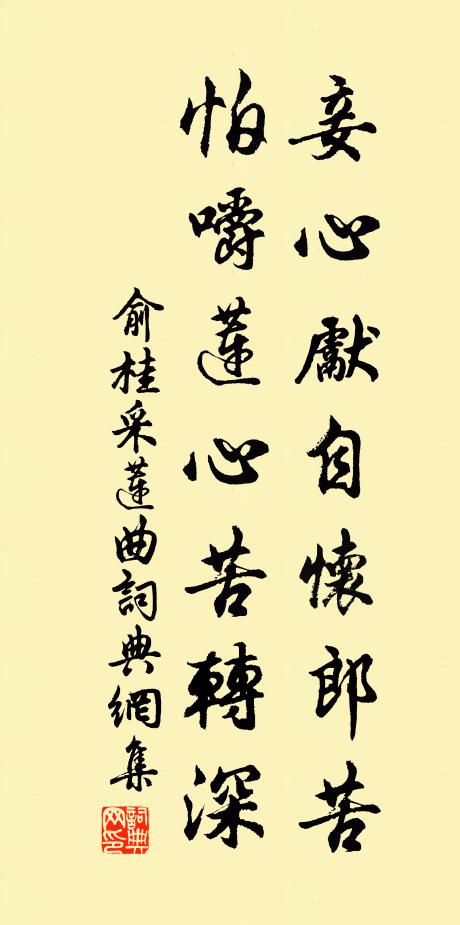 妾心獻自懷郎苦
怕嚼蓮心苦轉深
俞桂采蓮曲詞典網集
詞典网印